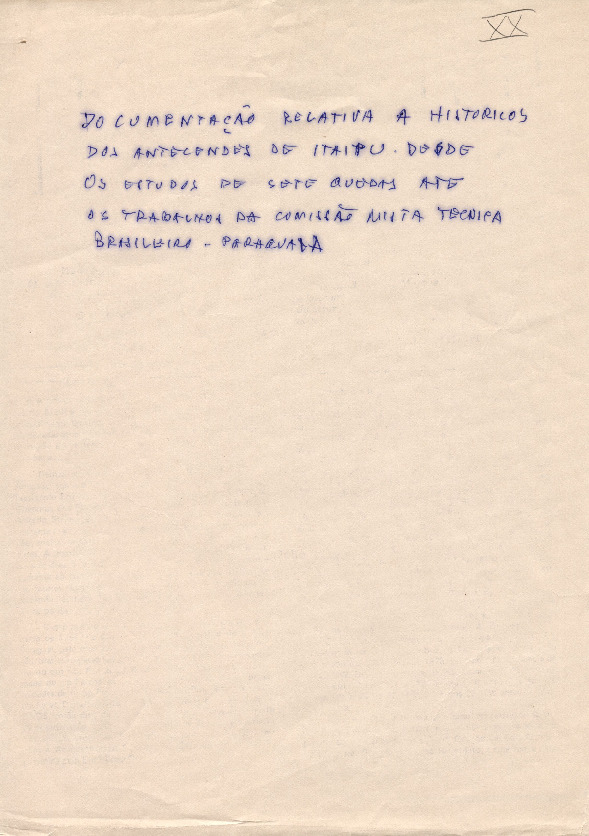 XX
DOCUMENTAÇÃO RELATIVA A HISTORICOS
DOS ANTECENDES DE ITAIPU. DESDE
OS ESTUDOS DE SETE QUEDAS ATÉ
OS TRABALHOS DA COMISSÃO MISTA TECNICA
BRASILEIRO - PARAGUAIA